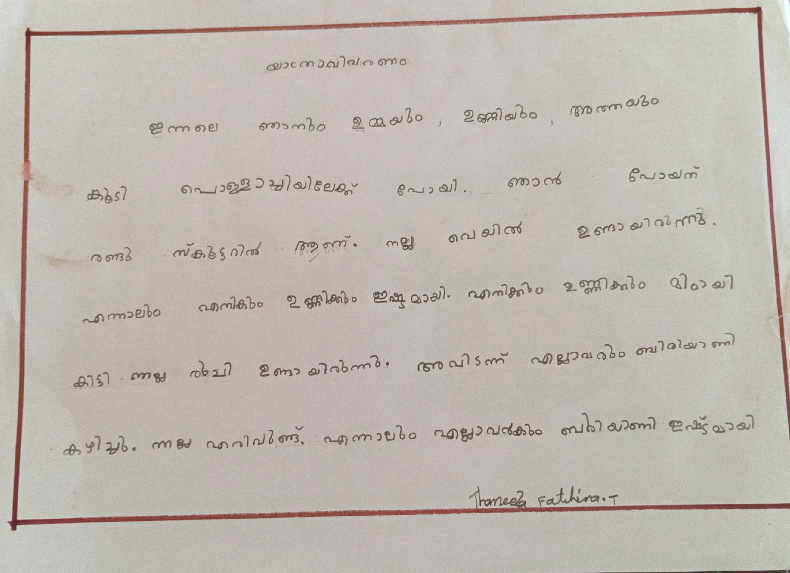 യാത്രാവിവരണം
ഇന്നലെ ഞാനും ഉമ്മയും , ഉണ്ണിയും , അത്തയും
കൂടി പൊള്ളാച്ചിയിലേക്ക് പോയി. ഞാൻ പോയത്
രണ്ടു സ്കൂട്ടറിൽ ആണ്. നല്ല വെയിൽ ഉണ്ടായിരുന്നു.
എന്നാലും എനികും ഉണ്ണിക്കും ഇഷ്ടമായി. എനിക്കും ഉണ്ണിക്കും മിഠായി
കിട്ടി. നല്ല രുചി ഉണ്ടായിരുന്നു. അവിടന്ന് എല്ലാവരും ബിരിയാണി
കഴിച്ചു. നല്ല എറിവുണ്ട്. എന്നാലും എല്ലാവർകും ബിരിയാണി ഇഷ്ട്ടമായി
Thameela Fathima.T